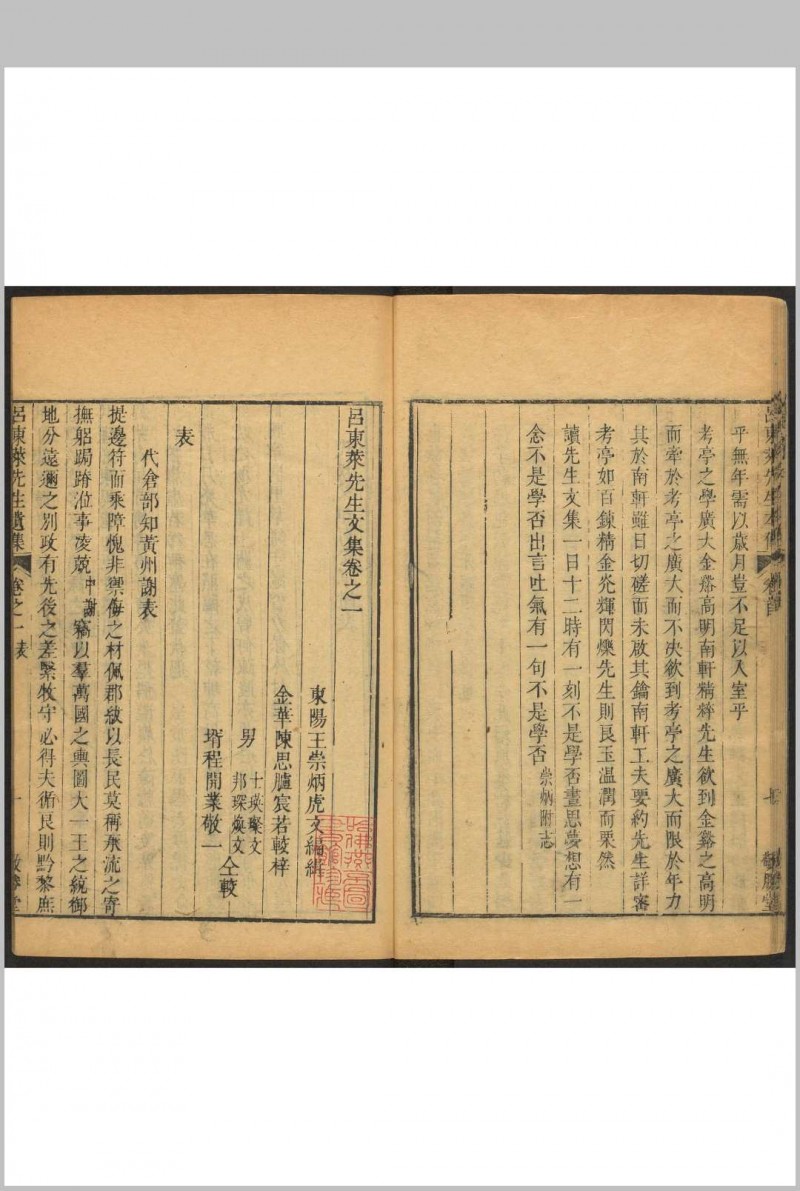 乎無年需以歲月豈不足以入室乎
考亭之學廣大金谿高明南軒精粹先生欲到金谿之高明
而牽於考亭之廣大而不决欲到考亭之廣大而限於年力
其於南軒雖日切磋而未啟其鑰南軒工夫要約先生詳審
考亭如百鍊精金光輝閃爍先生則良玉温潤而栗然
讀先生文集一日十二時有一刻不是學否晝思夢想有一
念不是學否出言吐氣有一句不是學否 崇炳附志
呂東萊先生文集卷之一
東陽王崇炳虎文編緝
金華陳思臚宸若較梓
男 士瑛璨文
邦琛煥文
壻程開業敬一 仝較
表
代倉部知黃州謝表
提邊符而乘障愧非禦侮之材佩郡紱以長民莫稱承流之寄
撫躬跼蹐涖事凌兢中謝竊以羣萬國之輿圖大一王之統御
地分遠邇之别政有先後之差緊牧守必得夫循良則黔黎庶
呂東萊先生遺集 卷之一 表 一